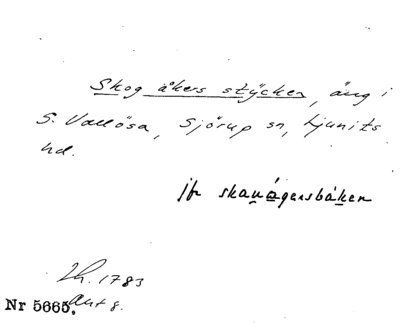 Skog åkers stÿcken, äng i
S. Vallösa, Sjörup sn, Ljunits
hd.
jfr skaṷágersbáken
Lh. 1783
Akt 8.
Nr 5665.